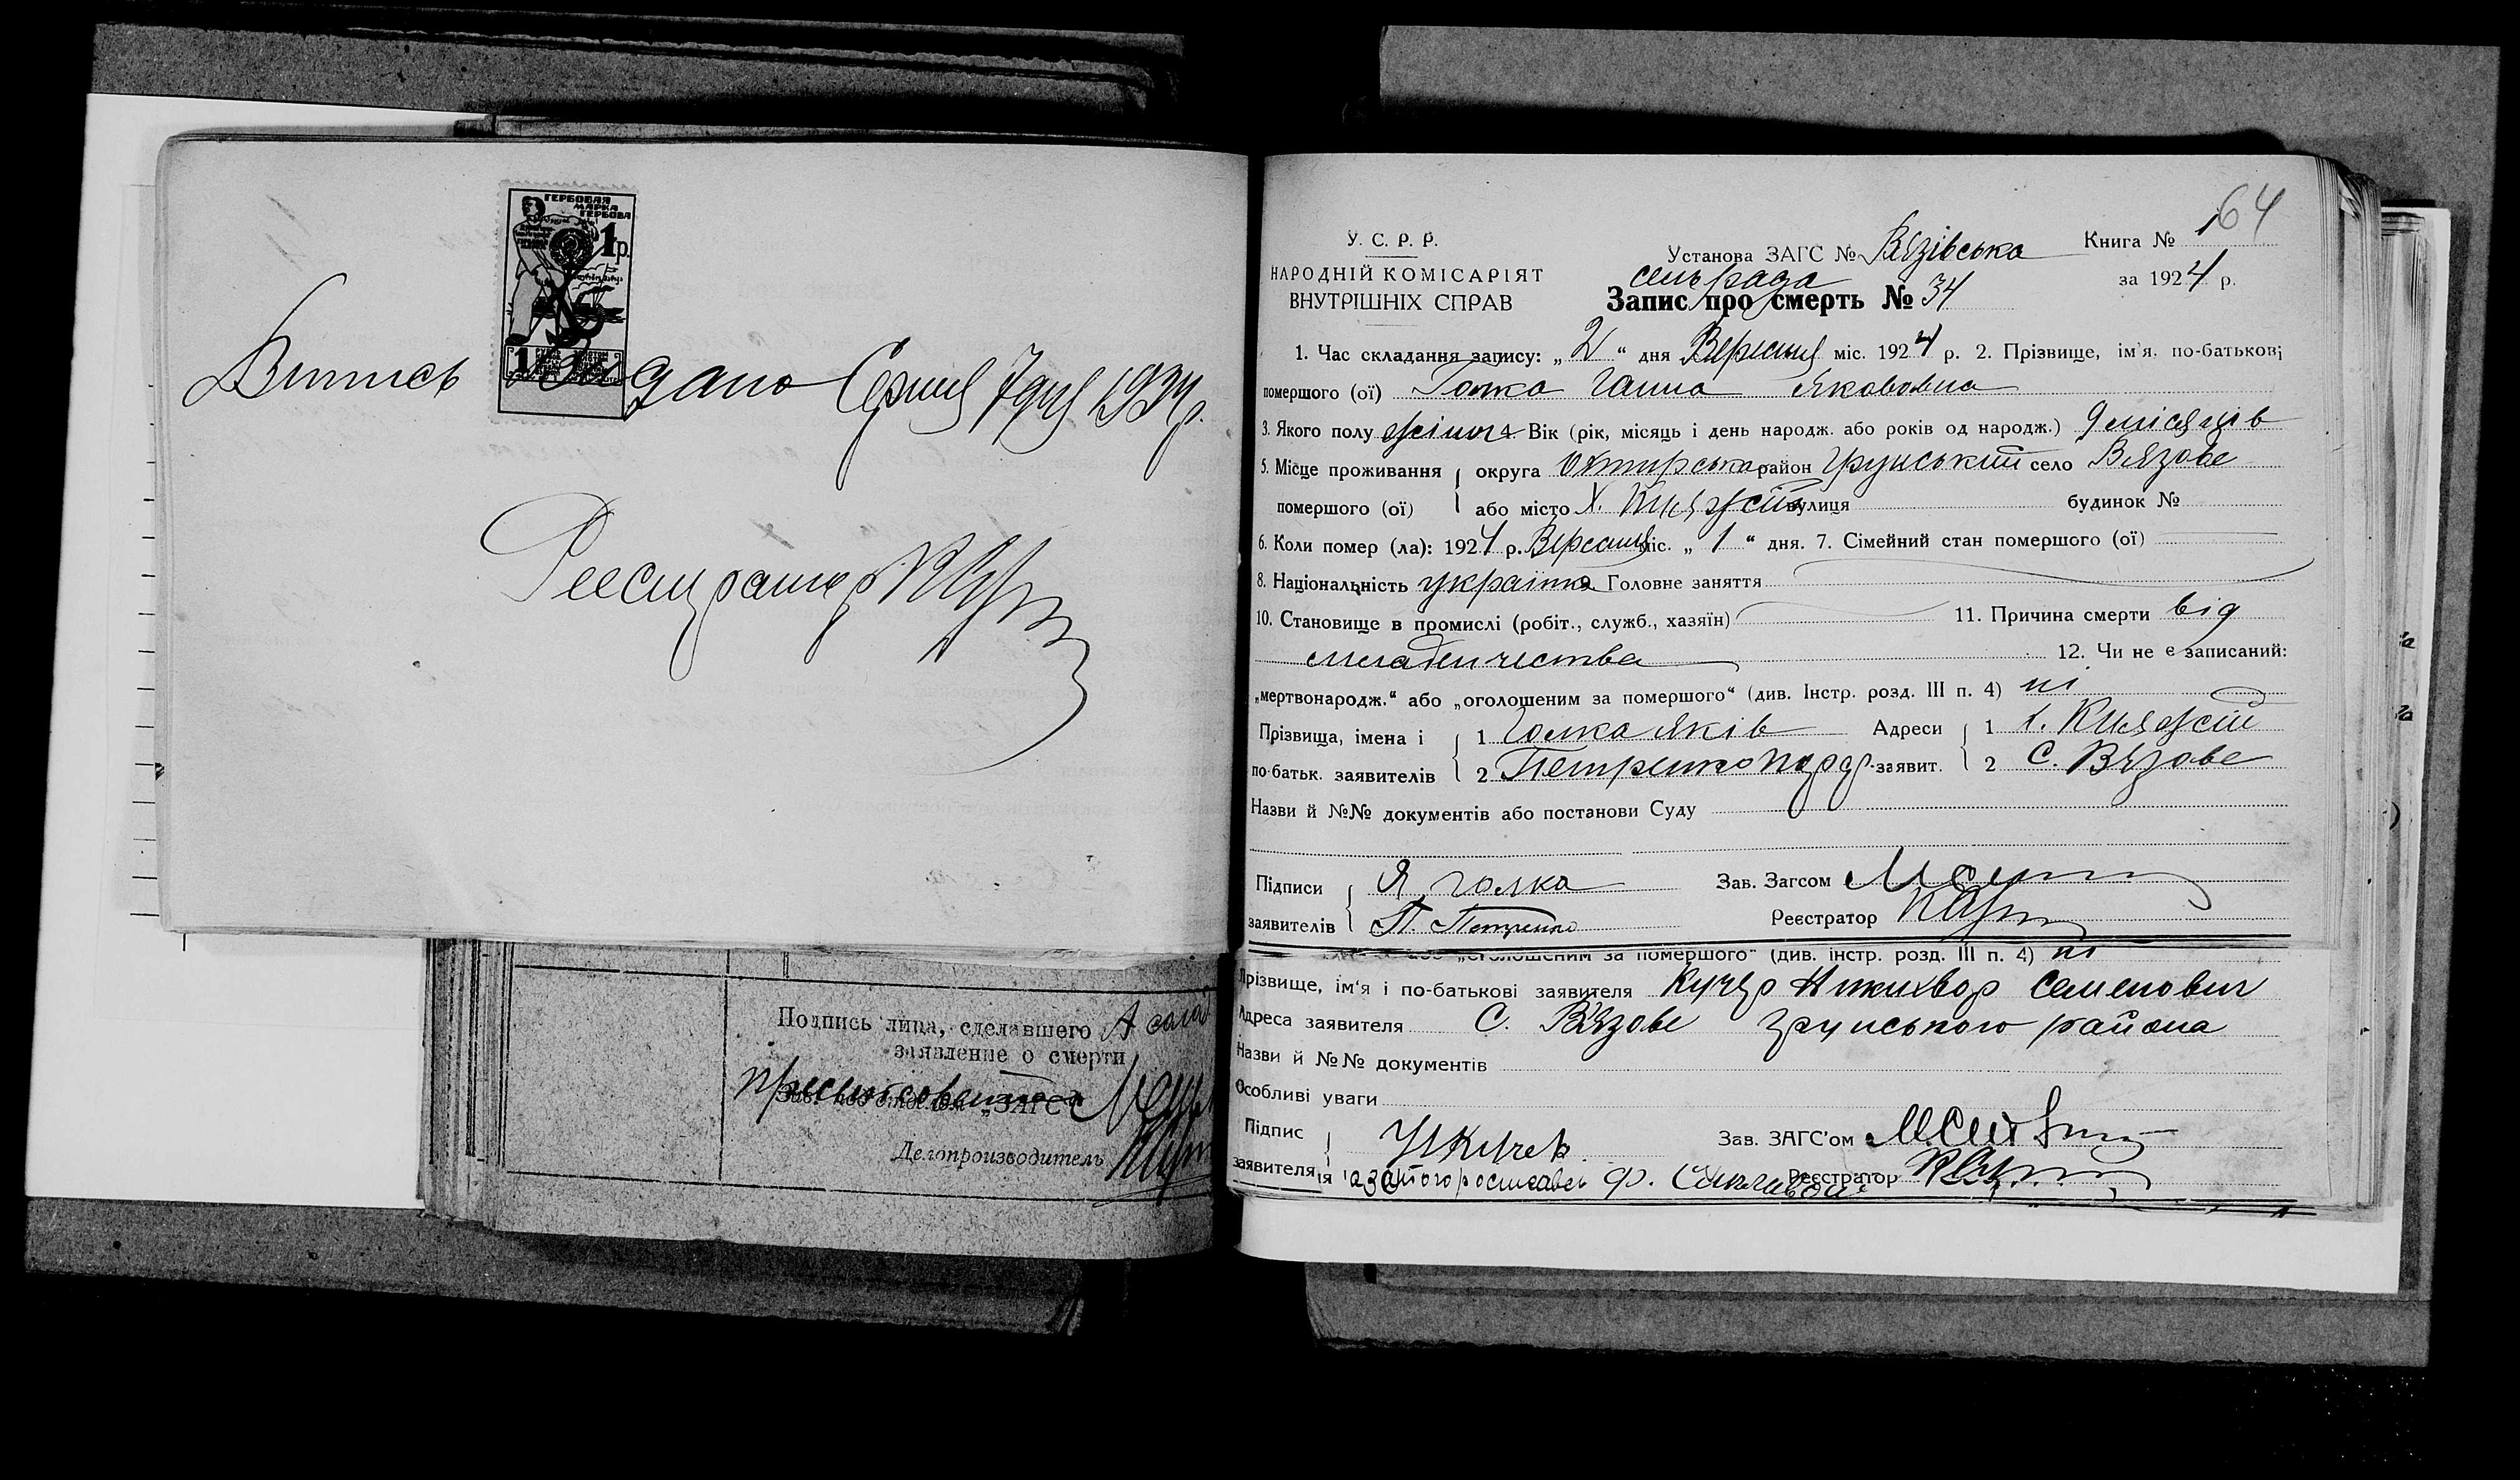 ГЕРБОВАЯ
МАРКА
ГЕРБОВА
1 р.
Випись видано Серпня 7 дня 1934 р.
Реестратор
64
У. С. Р. Р.
НАРОДНІЙ КОМІСАРІЯТ
ВНУТРІШНІХ СПРАВ
Установа ЗАГС № Вязівська
сельрада
Книга № 1
за 1924 р.
Запис про смерть № 34
1. Час складання запису: „ 2 “ дня Вересня міс. 1924 р. 2. Прізвище, ім'я, по-батькові
помершого (ої) Голка Ганна Якововна
3. Якого полу жіноч 4. Вік (рік, місяць і день народж. або років од народж.) 9 місяців
5. Місце проживання округа Охтирська район Грунський село Вязове
помершого (ої) або місто х. Княжий вулиця будинок №
6. Коли помер (ла): 1924 р. Вересня міс. „ 1 “ дня. 7. Сімейний стан помершого (ої)
8. Національність україн Головне заняття
10. Становище в промислі (робіт., служб., хазяїн) 11. Причина смерти від
младенчества 12. Чи не є записаний:
„мертвонародж.“ або „оголошеним за помершого“ (див. Інстр. розд. III п. 4) ні
Прізвища, імена і 1 Голка Яків Адреси 1 х. Княжий
по-батьк. заявителів 2 Петренко заявит. 2 с. Вязове
Назви й №№ документів або постанови Суду
Підписи Я Голка Зав. Загсом
заявителів П. Петренко Реєстратор
„оголошеним за помершого“ (див. інстр. розд. III п. 4) ні
Прізвище, ім'я і по-батькові заявителя Кучер Никифор Семенович
Адреса заявителя С. Вязове Грунського района
Назви й №№ документів
Особливі уваги
Підпис Н Кучер Зав. ЗАГС'ом
заявителя Реєстратор
Подпись лица, сделавшего
заявление о смерти
Зав. под отделом „ЗАГС“
Делопроизводитель